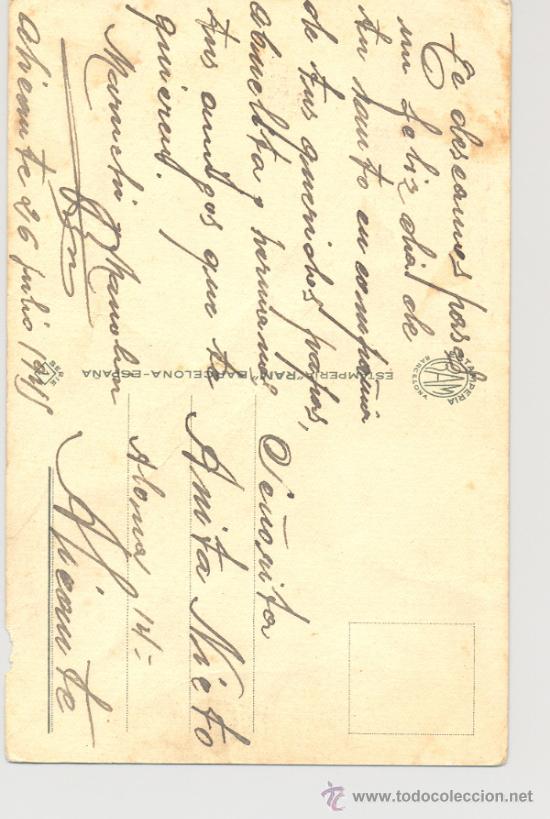 Te deseamos pases
un feliz dia de
tu santo en compañia
de tus queridos papás,
abuelita y hermanos
tus amigos que te
quieren.
Maruchi y Manolin
Alicante 26 julio 1945
ESTAMPERIA "RAN" BARCELONA-ESPAÑA
ESTAMPERIA
RAM
BARCELONA
Señorita
Anita Nieto
Aloma 14-
Alicante
www.todocoleccion.net